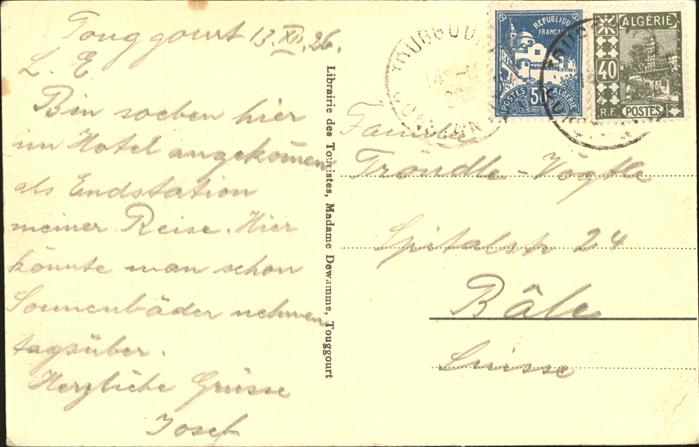 Touggourt 13.XII.26.
L. E
Bin soeben hier
im Hotel angekom̄en
als Endstation
meiner Reise. Hier
könnte man schon
Sonnenbäder nehmen
tagsüber.
Herzliche Grüsse
Josef
Librairie des Touristes, Madame Dewamme, Touggourt
TOUGGOU
REPUBLIQUE
FRANÇAISE
POSTES 50 ALGERIE
ALGÉRIE
40
R.F. POSTES
Familie
Tröndle-Vögtle
Spitalstr 24
Bâle
Suisse